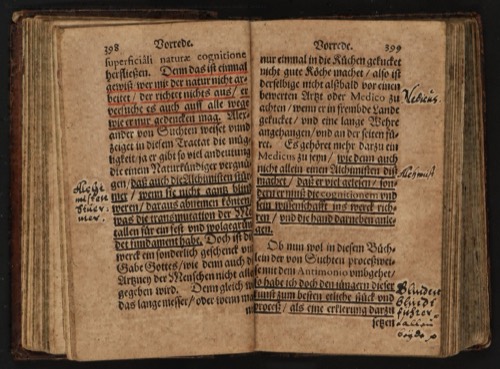 398 Vorrede.
superficiâli naturæ cognitione
herfliessen. Denn das ist einmal
gewiß wer mit der natur nicht ar-
beitet / der richtet nichts aus / er
versuche es auch auff alle wege
wie er nur gedencken mag. Alex-
ander von Suchten weiset vnnd
zeiget in diesem Tractat die müg-
ligkeit ja er gibt so viel andeutung
die einen Naturkündiger vergnü-
gen / daß auch die Alchimisten sün-
mer / wenn sie nicht gantz blind
weren / daraus abnemen können
was die transmutation der Me-
tallen für ein fest vnd wolgegrün-
det fundament habe. Doch ist di
werck ein sonderlich geschenck vn
Gabe Gottes / wie denn auch d
Artzney der Menschen nicht alle
gegeben wird. Denn gleich w
das lange messer / oder wenn ma
Vorrede. 399
nur einmal in die Küchen gekucket
nicht gute Köche machet / also ist
derselbige nicht alßbald vor einen
bewerten Artzt oder Medico zu
achten / wenn er in frembde Lande
gekucket / vnd eine lange Wehre
angehangen / vnd an der seiten fü-
ret. Es gehöret mehr darzu ein
Medicus zu seyn / wie denn auch
nicht allein einen Alchimisten diß
machet / daß er viel gelesen / son-
dern er muß die cognitionem vnd
die wissenschafft ins werck rich-
ten / vnd die hand darneben anle-
gen.
Ob nun wol in diesem Büch-
lein der von Suchten proceßwei-
se mit dem Antimonio vmbgehet /
so habe ich doch den jüngern dieser
kunst zum besten etliche stück vnd
proceß / als eine erklerung darzu
setzen
Medicus
Alchmist
Blinden